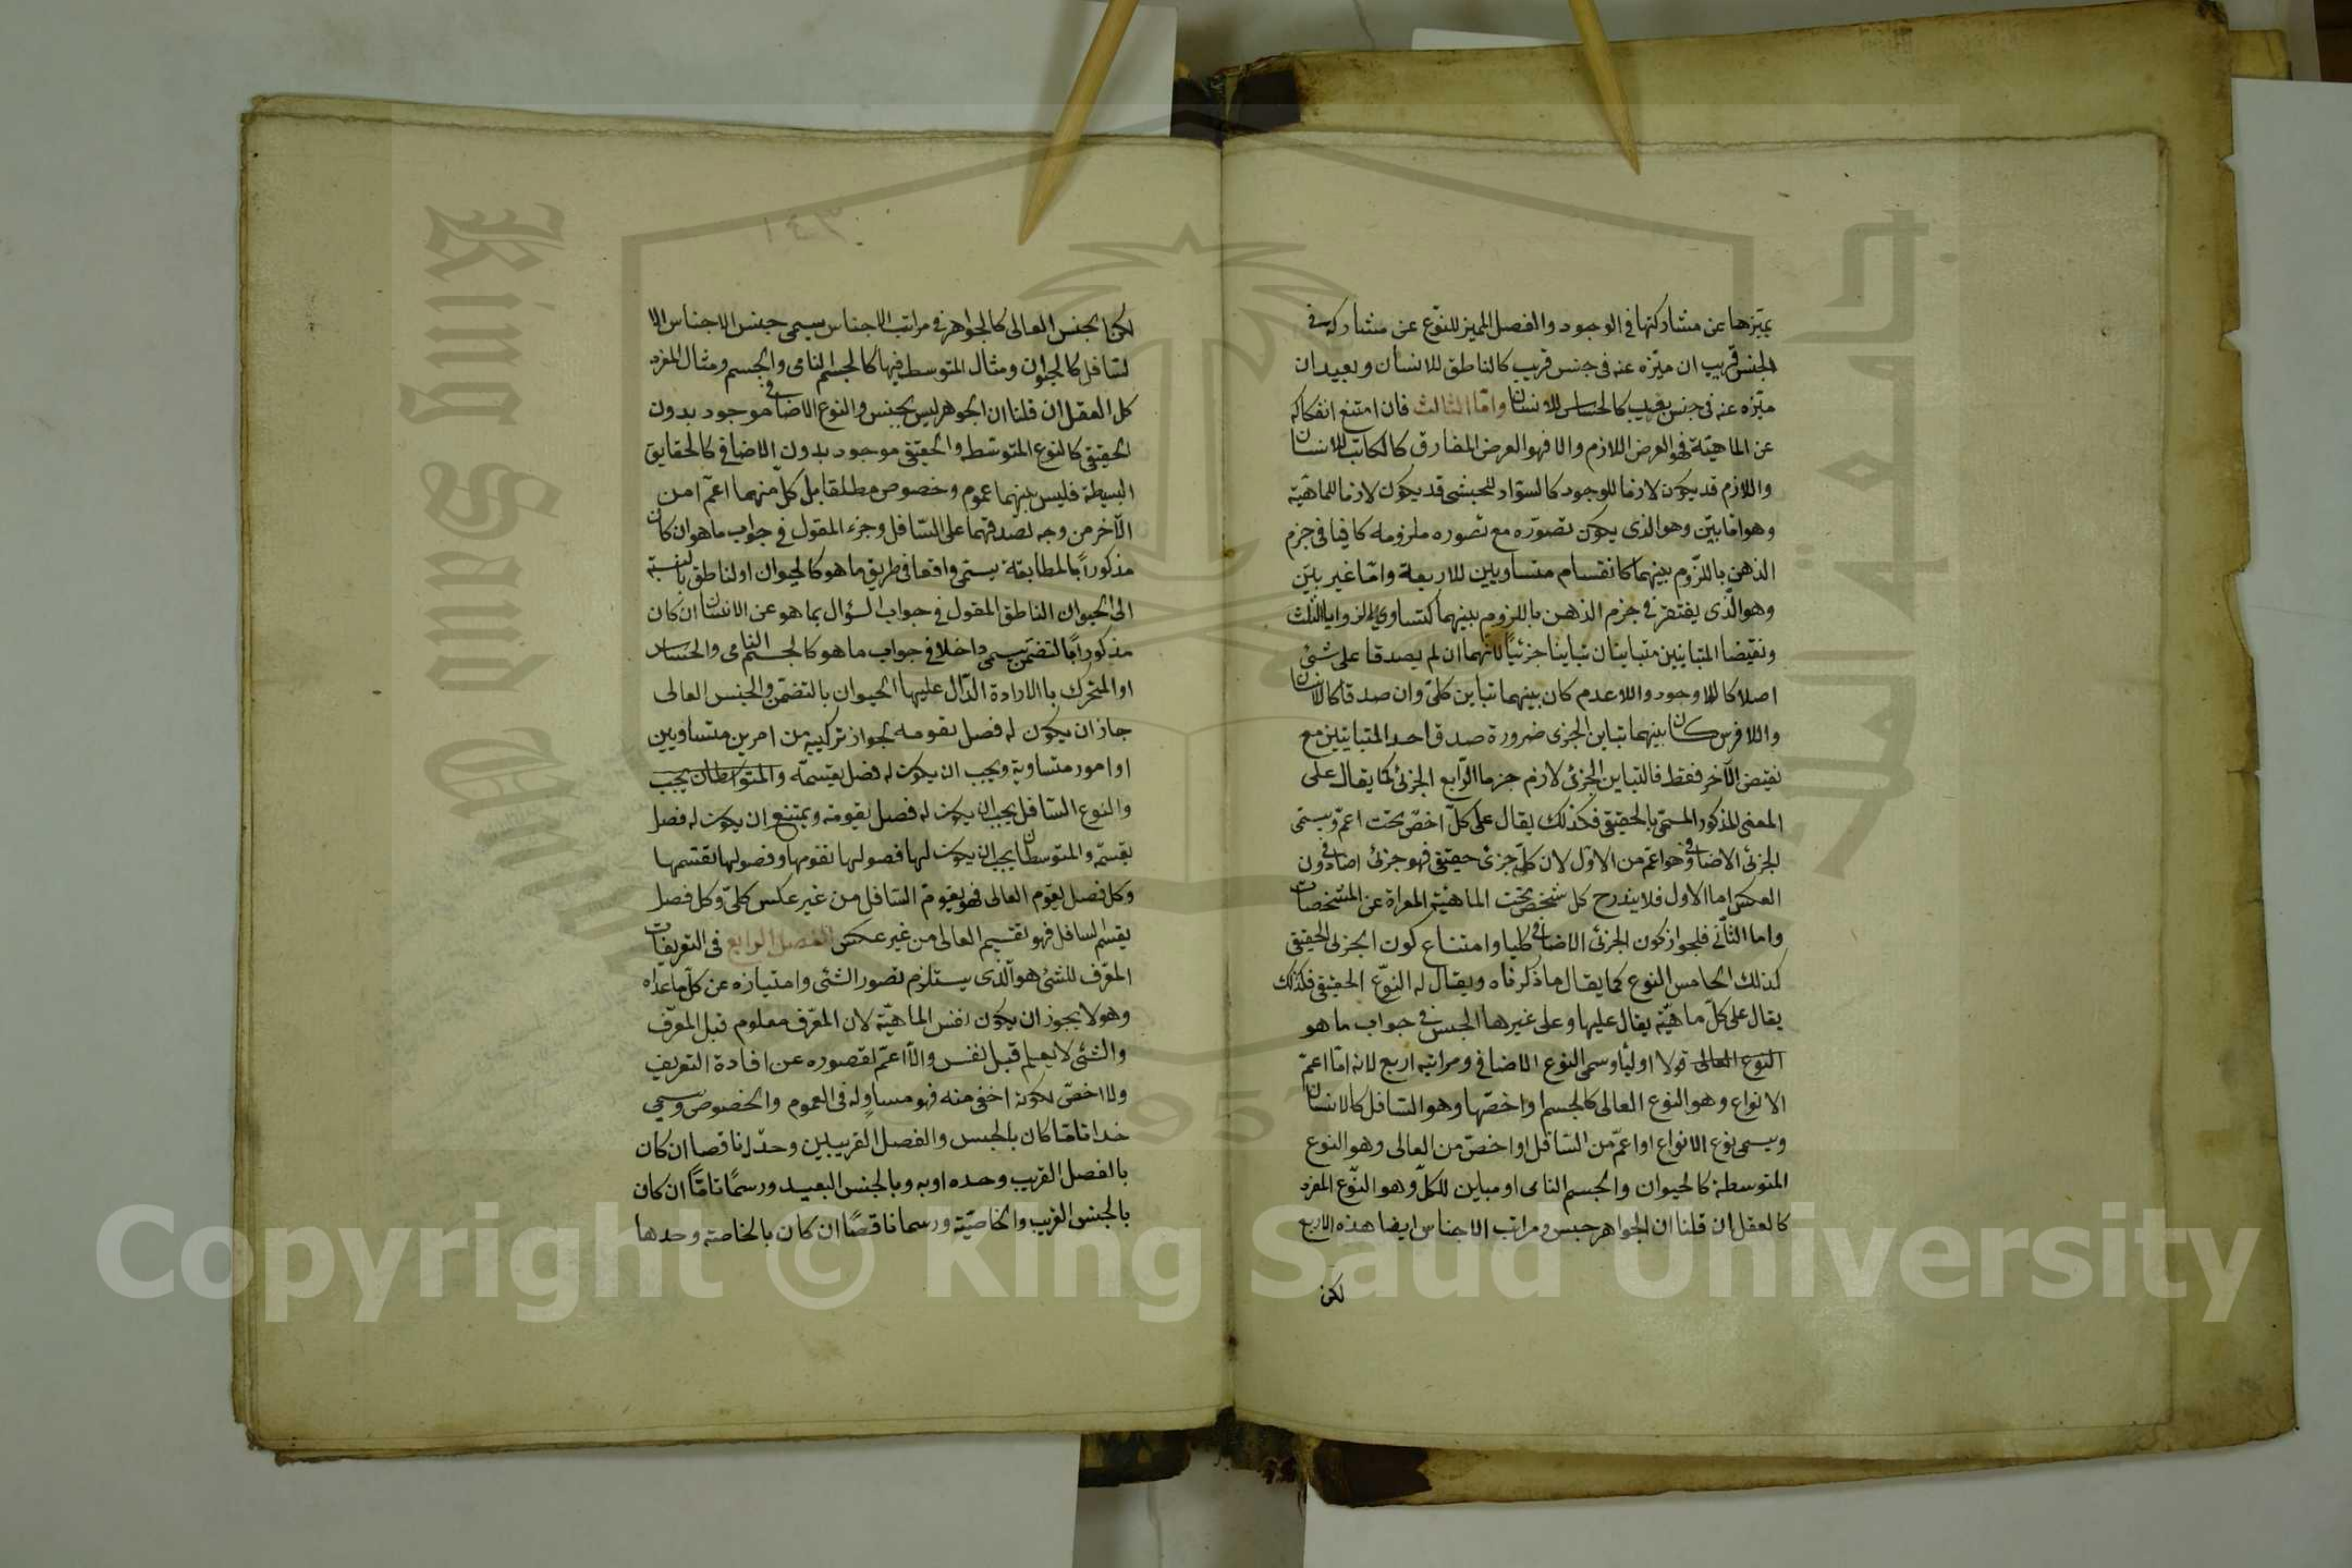 يميّزها عن مشاركتها في الوجود والفصل المميز للنّوع عن مشاركه في
الجنس قريب ان ميّزه عنه في جنس قريب كالناطق للانسان وبعيد ان
ميّزه عنه في جنس بعيد كالحساس للانسان وامّا الثالث فان امتنع انفكاكه
عن الماهيّة فهو العرض اللازم والا فهو العرض المفارق كالكاتب للانسان
واللازم قد يكون لازما للوجود كالسواد للحبشى قد يكون لازما للماهيّة
وهو امّا بيّن وهو الذى يكون تصوّره مع تصوره ملزومه كافيا فى جزم
الذهن باللزوم بينهما كانقسام متساويين للاربعة وامّا غير بيّن
وهو الّذى يفتقر في جزم الذهن باللزوم بينهما كتساوى الزوايا الثلث
ونقيضا المتباينين متباينان تباينا جزئيًا لانّهما ان لم يصدقا على شئ
اصلا كاللاوجود واللاعدم كان بينهما تباين كلىّ وان صدقا كاللاانسان
واللافرس كان بينهما تباين الجزى ضرورة صدق احد المتباينين مع
نقيض الآخر فقط فالتباين الجزئ لازم جزما الرّابع الجزئ كما يقال على
المعنى المذكور المسمّى بالحقيقى فكذلك يقال على كلّ اخصّ تحت اعمّ ويسمّى
الجزئ الاضافى وهو اعمّ من الاوّل لان كلّ جزئ حقيقى فهو جزئ اضافى دون
العكس اما الاول فلاندرح كل شخص تحت الماهيّته المعراة عن المشخصات
واما الثّانى فلجواز كون الجزئ الاضافى كليا وامتناع كون الجزئ الحقيقى
كذلك الخامس النوع كما يقال ما ذكرناه ويقال له النوّع الحقيقى فكذلك
يقال على كلّ ماهيّته يقال عليها وعلى غيرها الجنس في جواب ما هو
النوع العالى قولا اوليًا وسمى النوع الاضافى ومراتبه اربع لانه امّا اعمّ
الانواع وهو النوع العالى كالجسم او اخصّها وهو السّافل كالانسان
ويسمى نوع الانواع او اعمّ من السّافل او اخصّ من العالى وهو النوع
المتوسطة كالحيوان والجسم النامى او مباين للكلّ وهو النّوع المفرد
كالعقل ان قلنا ان الجواهر جنس ومراتب الاجناس ايضا هذه الاربع
لكن
١٤٣
لكن الجنس العالى كالجواهر في مراتب الاجناس يسمى جنس الاجناس الا
لسّافل كالحيوان ومثال المتوسط فيها كالجسم النامى والجسم ومثال المفرد
كل العقل ان قلنا ان الجوهر ليس بجنس والنوع الاضافى موجود بدون
الحقيقى كالنوع المتوسّطه والحقيقى موجود بدون الاضافي كالحقايق
البسيطة فليس بينهما عموم وخصوص مطلقا بل كلّ منهما اعمّ من
الآخر من وجه لصدقهما على السّافل وجزء المقول في جواب ما هو ان كان
مذكوراً بالمطابقة يسمّى واقعا في طريق ما هو كالحيوان او لناطق بالنسبة
الى الحيوان الناطق المقول في جواب السؤال بما هو عن الانسان ان كان
مذكوراً بالتضمّن يسمى داخلا في جواب ما هو كالجسم النامى والحساس
او المتحرك بالارادة الدّال عليها الحيوان بالتضمّن والجنس العالى
جاز ان يكون له فصل تقومه لجواز تركيبه من امرين متساويين
او امور متساوية ويجب ان يكون له فصل يقسّمه والمتوسطان يجب
والنوع السّافل يجب ان يكون له فصل يقومه ويمتنع ان يكون له فصل
يقسمّه والمتوسطان يجب ان يكون لها فصولها تقومها وفصولها تقسّمها
وكل فصل يقوم العالى فهو يقوم السّافل من غير عكس كلىّ وكل فصل
يقسم السافل فهو تقسيم العالى من غير عكس الفصل الرابع في التعريفات
المعرّف للشئ هو الّذى يستلزم تصوره تصور الشئى وامتيازه عن كلّ ما عداه
وهو لا يجوز ان يكون نفس الماهيّة لان المعرّف معلوم قبل المعرّف
والشئى لا يعلم قبل نفسه ولا اعمّ لقصوره عن افادة التعريف
ولا اخصّ لكونه اخفى منه فهو مساوٍ له في العموم والخصوص ويسمى
حدا تامّا كان بالجنس والفصل القريبين وحدّا ناقصا ان كان
بالفصل القريب وحده او به وبالجنس البعيد ورسمًا تامّا ان كان
بالجنس القريب والخاصّيّة ورسما ناقصًا ان كان بالخاصة وحدها
King Saud University
جامعة الملك سعود
1957
Copyright © King Saud University